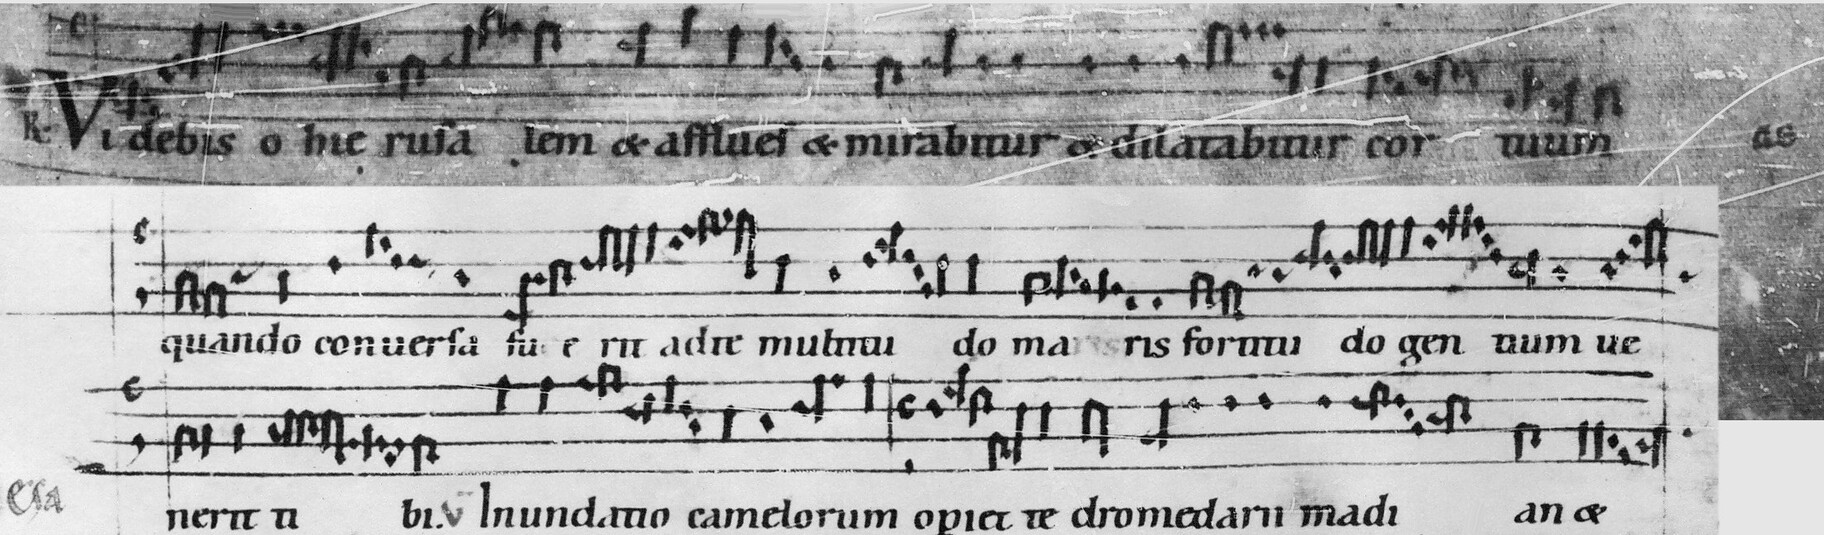 R. Videbis o hie rusa lem & afflues & mirabitur & dilatabitur cor tuum
quando conuersa fu e rit ad te multitu do ma ris fortitu do gen tium ue
nerit ti bi. V Inundatio camelorum opiet te dromedarii madi an &